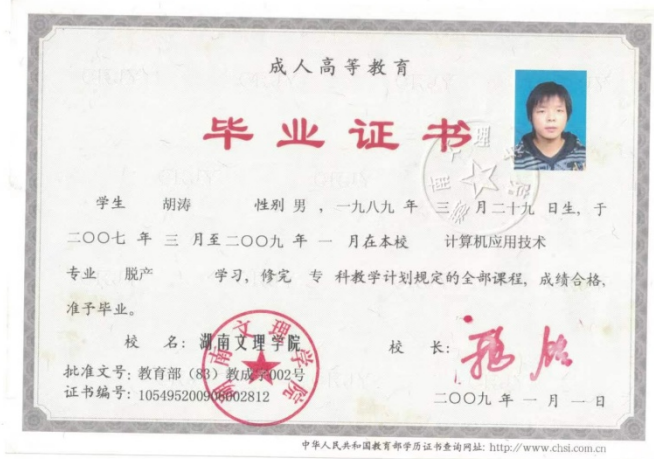 成人高等教育
毕业证书
学生 胡涛 性别 男 ，一九八九 年 三 月 二十九 日生，于
二〇〇七 年 三 月至 二〇〇九 年 一 月在本校 计算机应用技术
专业 脱产 学习，修完 专 科教学计划规定的全部课程，成绩合格，
准予毕业。
校 名：湖南文理学院
校 长：
批准文号：教育部（83）教成字002号
证书编号：105495200906002812
二〇〇九 年 一 月 一 日
湖南文理学院
中华人民共和国教育部学历证书查询网址：http://www.chsi.com.cn